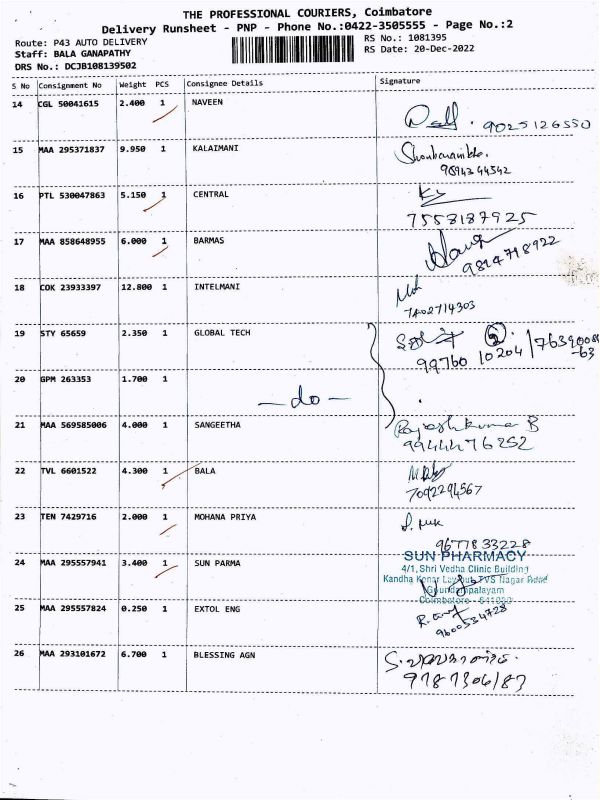 THE PROFESSIONAL COURIERS, Coimbatore
Delivery Runsheet - PNP - Phone No.:0422-3505555 - Page No.:2
Route: P43 AUTO DELIVERY RS No.: 1081395
Staff: BALA GANAPATHY RS Date: 20-Dec-2022
DRS No.: DCJB108139502
S No Consignment No Weight PCS Consignee Details Signature
14 CGL 50041615 2.400 1 NAVEEN
9025126550
15 MAA 295371837 9.950 1 KALAIMANI
16 PTL 530047863 5.150 1 CENTRAL
7558187925
17 MAA 858648955 6.000 1 BARMAS
18 COK 23933397 12.800 1 INTELMANI
7402714303
19 STY 65659 2.350 1 GLOBAL TECH
99760 10204
20 GPM 263353 1.700 1
- do -
21 MAA 569585006 4.000 1 SANGEETHA
Rajeshkumar B
9944476252
22 TVL 6601522 4.300 1 BALA
7092294567
23 TEN 7429716 2.000 1 MOHANA PRIYA
9677833228
24 MAA 295557941 3.400 1 SUN PARMA
SUN PHARMACY
4/1, Shri Vedha Clinic Building
Kandha Konar Layout, TVS Nagar Road
Coimbatore
25 MAA 295557824 0.250 1 EXTOL ENG
9600534728
26 MAA 293101672 6.700 1 BLESSING AGN